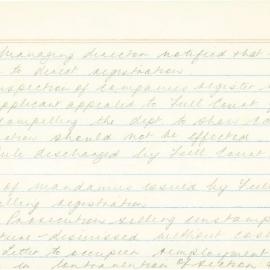 Managing director notified that
to direct registration
inspection of companies register
applicant appealed to Full Court
compelling the dept to show
should not be effected
Rule discharged by Full Court
of Mandamus issued by Full
registration
Prosecution selling unstamped
dismissed without costs
Letter to occupier
in contravention of Section